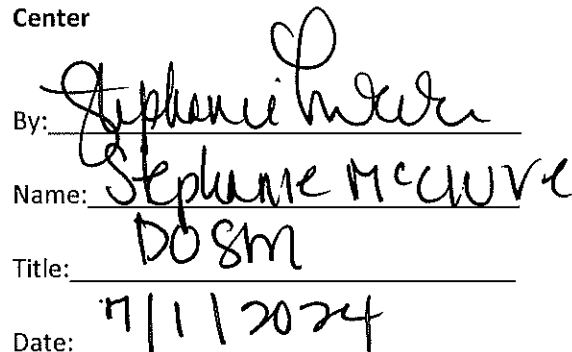 Center
By: Stephanie McClure
Name: Stephanie McClure
Title: DOSM
Date: 7/1/2024